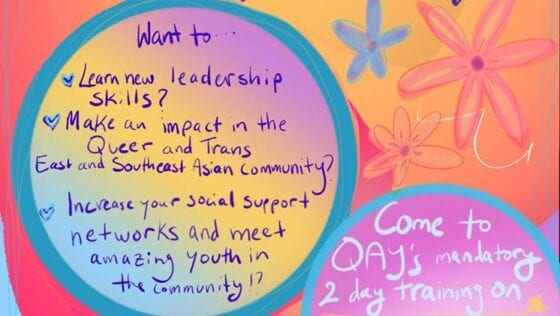 Want to...
Learn new leadership
skills?
Make an impact in the
Queer and Trans
East and Southeast Asian Community?
Increase your social support
networks and meet
amazing youth in
the community!?
Come to
QAY's mandatory
2 day training on